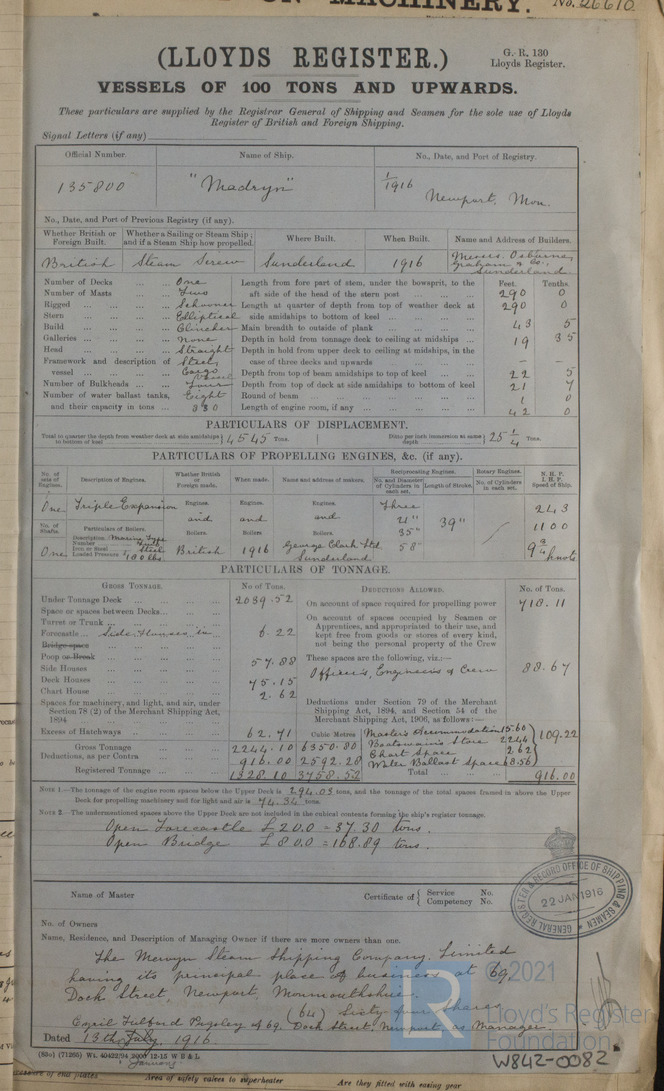 ON MACHINERY. No. 26610
(LLOYDS REGISTER.)
G. R. 130
Lloyds Register.
VESSELS OF 100 TONS AND UPWARDS.
These particulars are supplied by the Registrar General of Shipping and Seamen for the sole use of Lloyds
Register of British and Foreign Shipping.
Signal Letters (if any)
Official Number. Name of Ship. No., Date, and Port of Registry.
135800 "Madryn" 1/1916 Newport, Mon.
No., Date, and Port of Previous Registry (if any).
Whether British or Foreign Built. Whether a Sailing or Steam Ship; and if a Steam Ship how propelled. Where Built. When Built. Name and Address of Builders.
British Steam Screw Sunderland 1916 Messrs. Osbourne, Graham & Co., Sunderland
Number of Decks One Length from fore part of stem, under the bowsprit, to the Feet. Tenths.
Number of Masts Two aft side of the head of the stern post 290 0
Rigged Schooner Length at quarter of depth from top of weather deck at 290 0
Stern Elliptical side amidships to bottom of keel
Build Clincher Main breadth to outside of plank 43 5
Galleries None Depth in hold from tonnage deck to ceiling at midships 19 35
Head Straight Depth in hold from upper deck to ceiling at midships, in the
Framework and description of Steel, case of three decks and upwards – –
vessel Cargo Depth from top of beam amidships to top of keel 22 5
Number of Bulkheads Four Depth from top of deck at side amidships to bottom of keel 21 7
Number of water ballast tanks, Eight Round of beam 1 0
and their capacity in tons 830 Length of engine room, if any 42 0
PARTICULARS OF DISPLACEMENT.
Total to quarter the depth from weather deck at side amidships to bottom of keel 4545 Tons. Ditto per inch immersion at same depth 25 1/4 Tons.
PARTICULARS OF PROPELLING ENGINES, &c. (if any).
No. of sets of Engines. Description of Engines. Whether British or Foreign made. When made. Name and address of makers. Reciprocating Engines. Rotary Engines. N. H. P. I. H. P. Speed of Ship.
No. and Diameter of Cylinders in each set. Length of Stroke. No. of Cylinders in each set.
One Triple Expansion Engines. Engines. Engines. Three 243
and and and 21" 39" 1100
No. of Shafts. Particulars of Boilers. Boilers. Boilers. Boilers. 35"
Description Marine Type
Number
Iron or Steel Steel
One Loaded Pressure 180 lbs British 1916 George Clark Ltd Sunderland 58" 9 3/4 knots
PARTICULARS OF TONNAGE.
GROSS TONNAGE. No of Tons. DEDUCTIONS ALLOWED. No. of Tons.
Under Tonnage Deck 2039.52 On account of space required for propelling power 718.11
Space or spaces between Decks
Turret or Trunk On account of spaces occupied by Seamen or
Forecastle Side Houses in 6.22 Apprentices, and appropriated to their use, and
Bridge space kept free from goods or stores of every kind,
not being the personal property of the Crew
Poop or Break 57.88 These spaces are the following, viz.:—
Side Houses Officers, Engineers & Crew 88.67
Deck Houses 75.15
Chart House 2.62
Spaces for machinery, and light, and air, under Deductions under Section 79 of the Merchant
Section 78 (2) of the Merchant Shipping Act, Shipping Act, 1894, and Section 54 of the
1894 Merchant Shipping Act, 1906, as follows:—
Excess of Hatchways 62.71 Cubic Metres Master's Accommodation 15.60
Gross Tonnage 2244.10 6350.80 Boatswain's Store 22.44 109.22
Deductions, as per Contra 916.00 2592.28 Chart Space 2.62
Registered Tonnage 1328.10 3758.52 Water Ballast Space 68.56
Total 916.00
NOTE 1.—The tonnage of the engine room spaces below the Upper Deck is 294.03 tons, and the tonnage of the total spaces framed in above the Upper
Deck for propelling machinery and for light and air is 74.34 tons.
NOTE 2.—The undermentioned spaces above the Upper Deck are not included in the cubical contents forming the ship's register tonnage.
Open Forecastle £ 20.0 = 37.30 tons.
Open Bridge £ 80.0 = 168.89 tons.
Name of Master Certificate of { Service No. Competency No.
REGISTER & RECORD OFFICE OF SHIPPING & SEAMEN
22 JAN 1916
GENERAL
No. of Owners
Name, Residence, and Description of Managing Owner if there are more owners than one.
The Mervyn Steam Shipping Company, Limited
having its principal place of business at 69,
Dock Street, Newport, Monmouthshire.
(64) Sixty four shares
Cyril Fulford Pugsley of 69, Dock Street, Newport, as Manager.
Dated 1916
© 2021
Lloyd's Register
Foundation
W842-0082
(65o) (71265) Wt. 40422/94 2000 12-15 W B & L
Area of safety valves to superheater
Are they fitted with easing gear